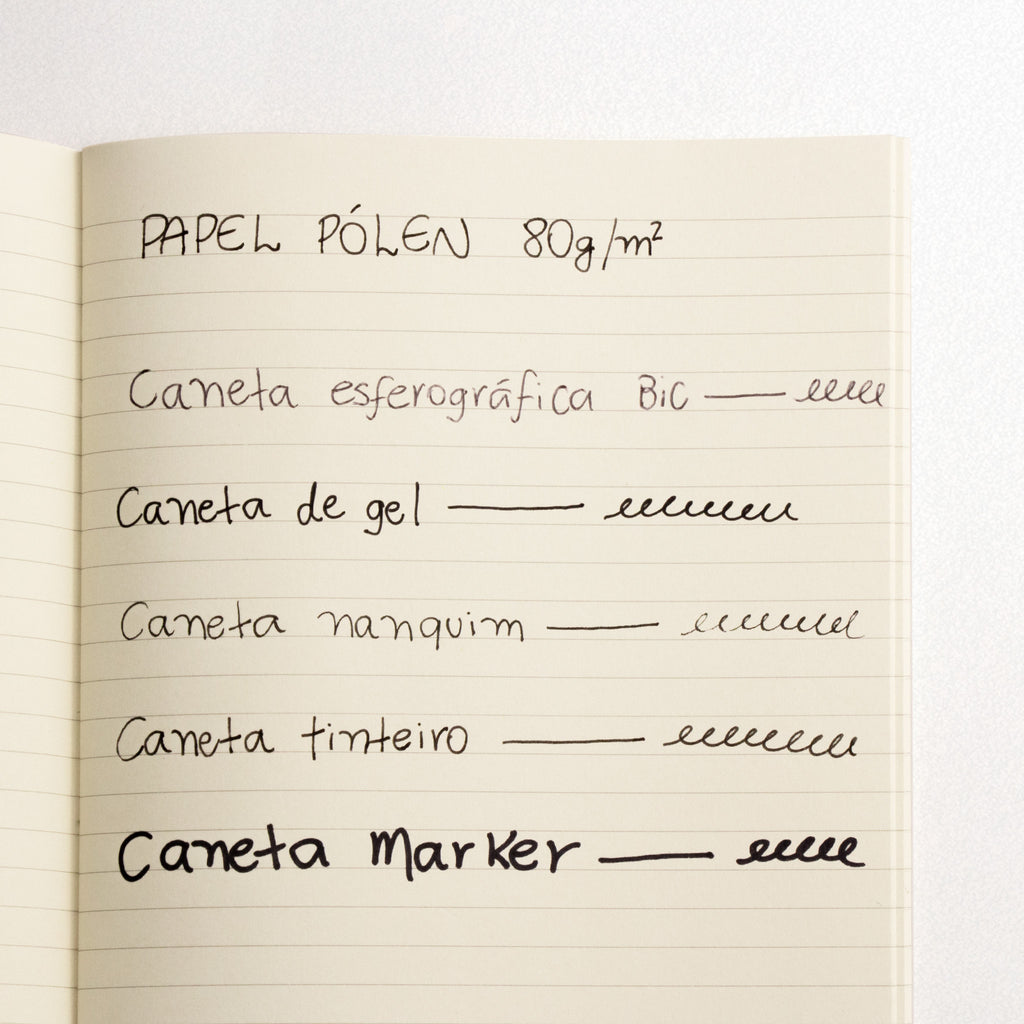 PAPEL PÓLEN 80g/m²
Caneta esferográfica BiC
Caneta de gel
Caneta nanquim
Caneta tinteiro
Caneta Marker